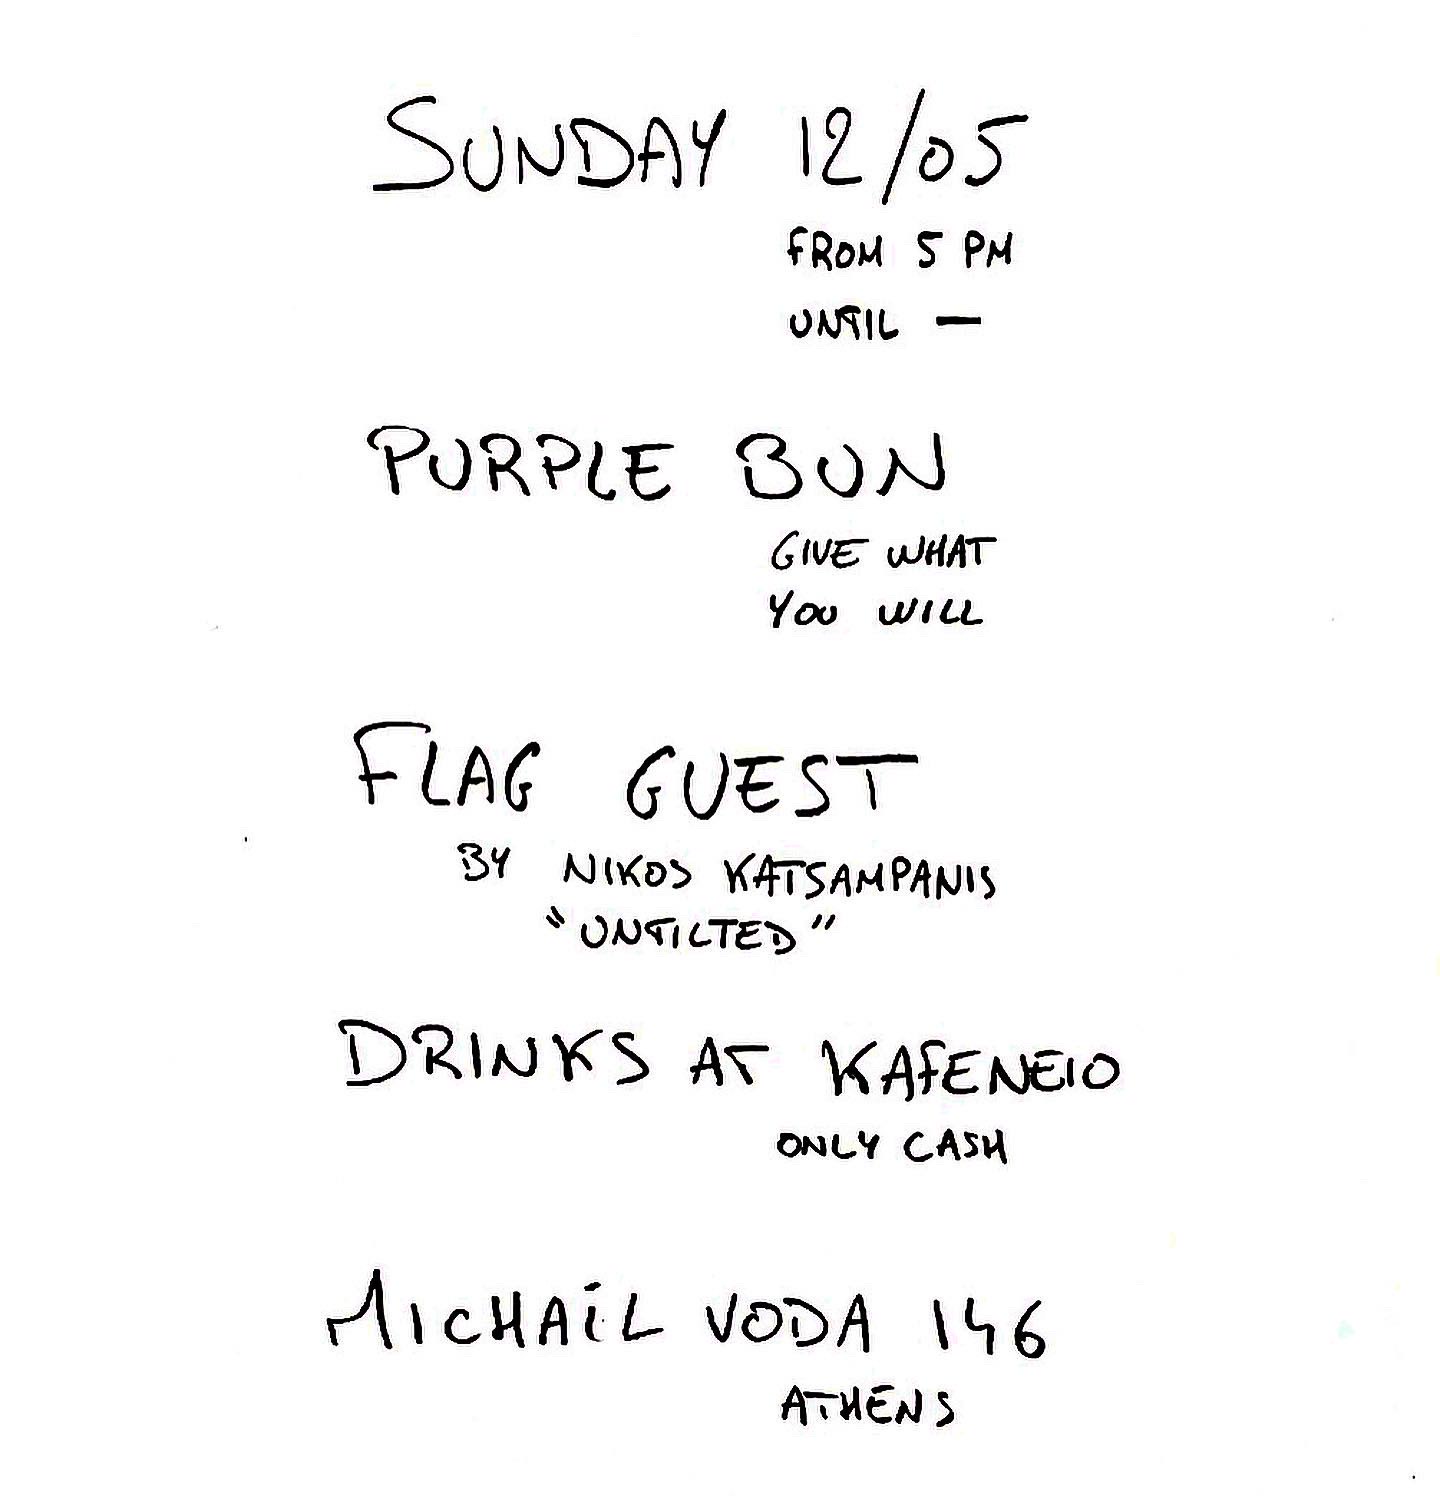 SUNDAY 12/05
FROM 5 PM
UNTIL —
PURPLE BUN
GIVE WHAT
YOU WILL
FLAG GUEST
BY NIKOS KATSAMPANIS
"UNTILTED"
DRINKS AT KAFENEIO
ONLY CASH
MICHAIL VODA 146
ATHENS